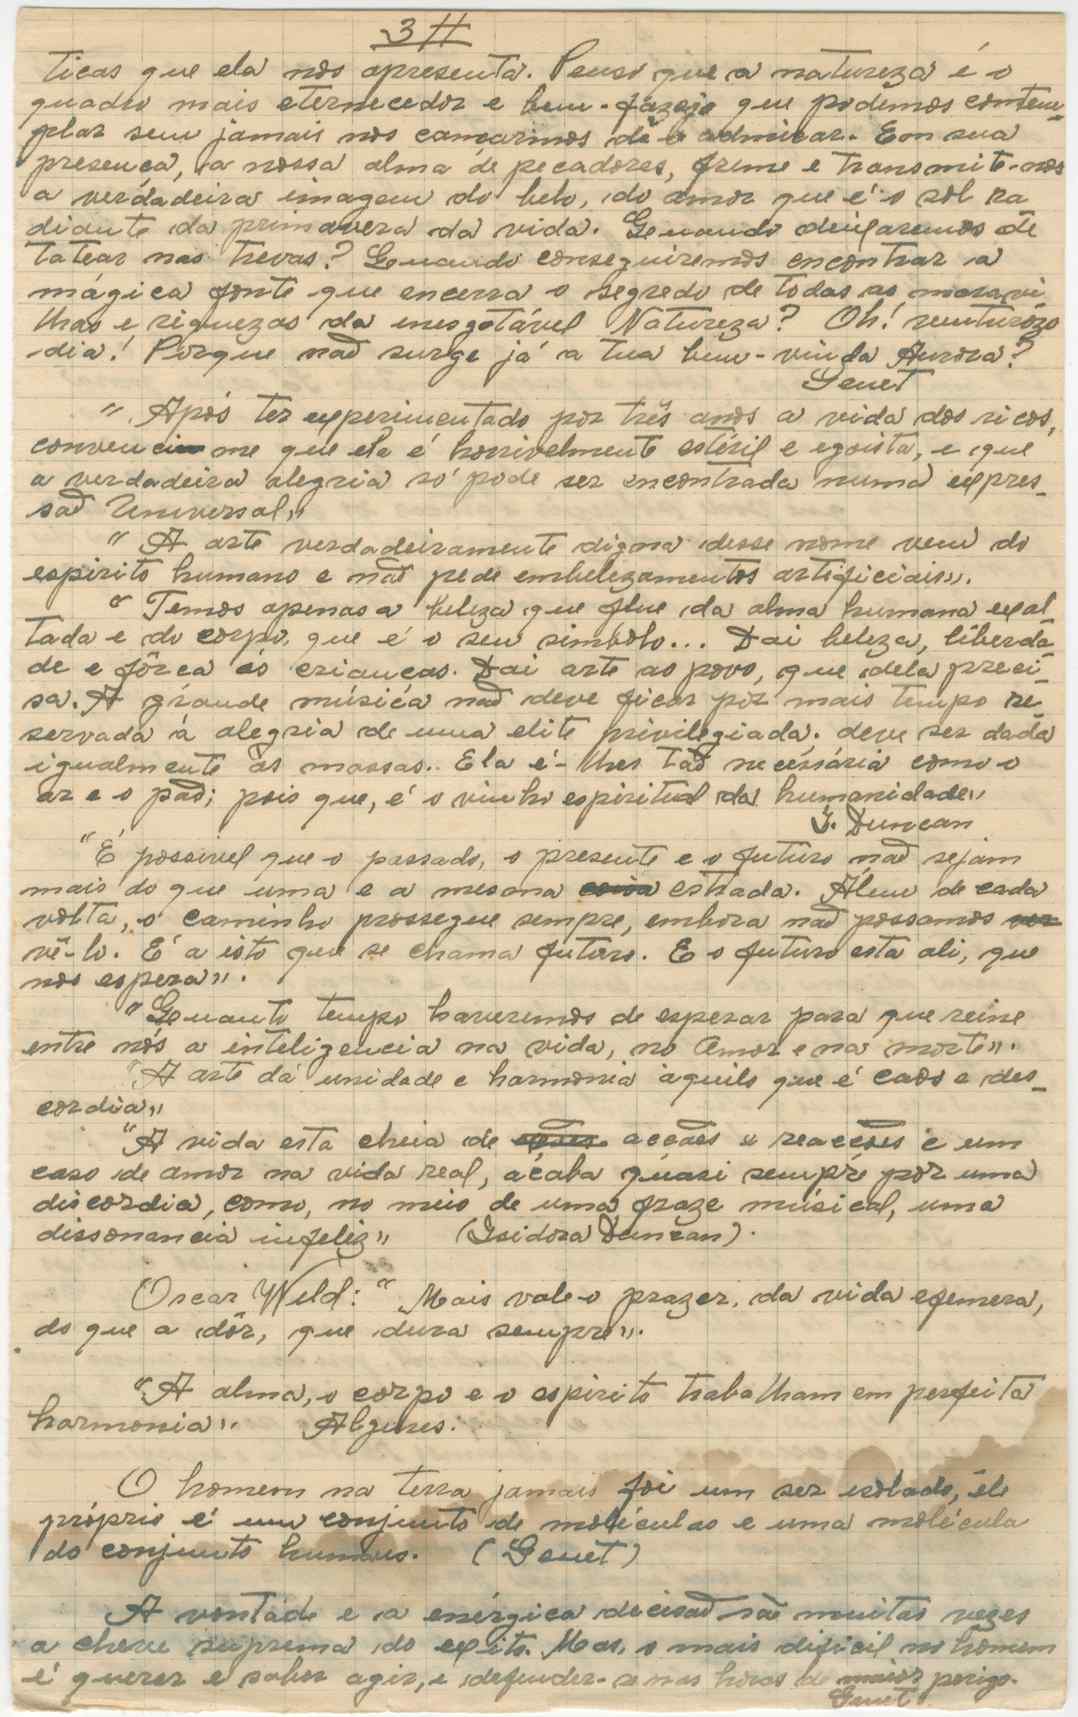 3 H
ticas que ela nos apresenta. Penso que a natureza é o
quadro mais eternecedor e bem-fazejo que podemos contem-
plar sem jamais nos cansarmos de a admirar. Em sua
presença, a nossa alma de pecadores, freme e transmite-nos
a verdadeira imagem do belo, do amor que é o sol ra
diante da primavera da vida. Quando deixaremos de
tatear nas trevas? Quando conseguiremos encontrar a
mágica fonte que encerra o segredo de todas as maravi-
lhas e riquezas da inesgotável Natureza? Oh! venturozo
dia! Porque não surge já a tua bem-vinda Aurora?
Genet
" Após ter experimentado por três anos a vida dos ricos,
convenci me que ela é horrivelmente estéril e egoista, e que
a verdadeira alegria só pode ser encontrada numa expres-
são Universal"
" A arte verdadeiramente digna desse nome vem do
espirito humano e não pede embelezamentos artificiais".
" Temos apenas a beleza que flue da alma humana exal
tada e do corpo que é o seu simbolo... Dai beleza, liberda-
de e fôrça ás crianças. Dai arte ao povo, que dela preci-
sa. A grande música não deve ficar por mais tempo re-
servada á alegria de uma elite privilegiada. deve ser dada
igualmente ás massas. Ela é-lhes tão necéssária como o
ar e o pão; pois que, é o vinho espiritual da humanidade"
I. Duncan
"É possivel que o passado, o presente e o futuro não sejam
mais do que uma e a mesma coisa estrada. Álem de cada
volta, o caminho prossegue sempre, embora não possamos ver
vê-lo. É a isto que se chama futuro. E o futuro está ali, que
nos espera".
"Quanto tempo haveremos de esperar para que reine
entre nós a inteligencia na vida, no Amor e na morte".
"A arte dá unidade e harmonia àquilo que é caos e des-
cordia"
"A vida está cheia de acções e reacções e um
caso de amor na vida real, acaba quási sempre por uma
discordia, como, no meio de uma fraze músical, uma
dissonancia infeliz" (Isidora Duncan).
Oscar Wild: " Mais vale o prazer, da vida efemera,
do que a dôr, que dura sempre".
"A alma, o corpo e o espirito trabalham em perfeita
harmonia". Algures.
O homem na terra jamais foi um ser isolado, êle
próprio é um conjunto de moléculas e uma molécula
do conjunto humano. (Genet)
A vontade e a enérgica decisão são muitas vezes
a chave suprema do exito. Mas, o mais dificil no homem
é querer e saber agir, e defender-se nas horas de maior perigo.
Genet